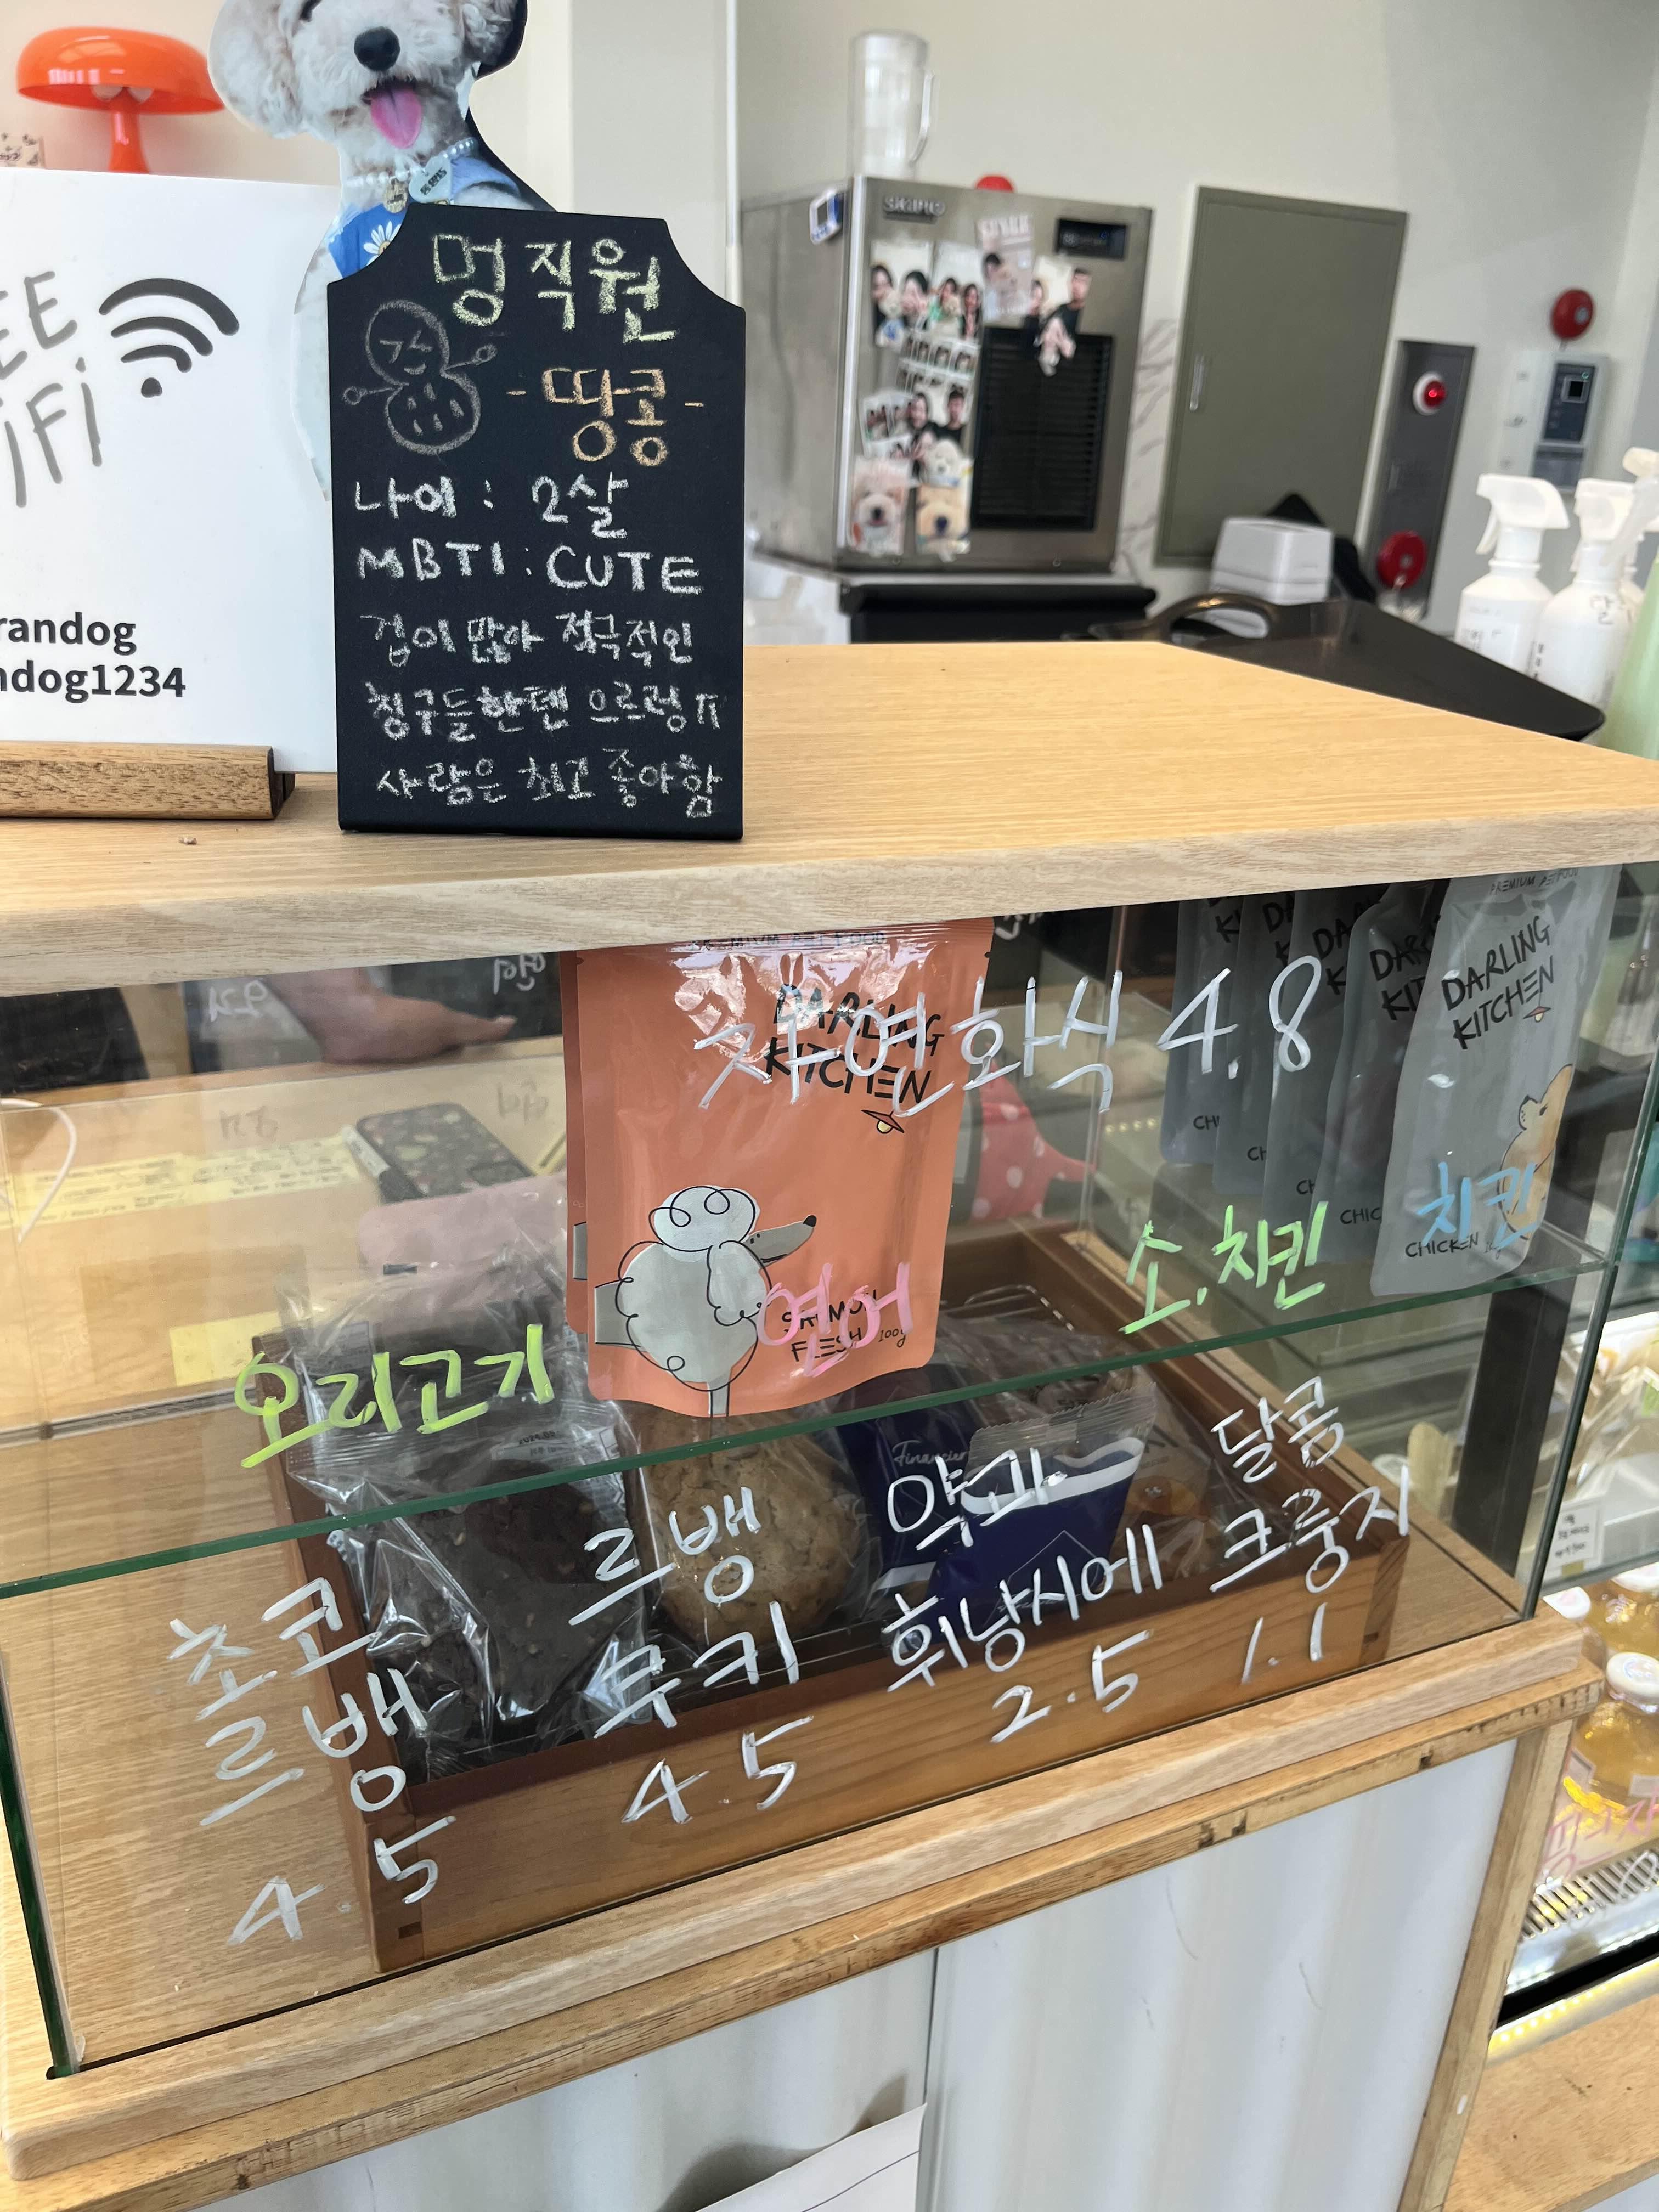 멍직원
-땅콩-
나이 : 2살
MBTI : CUTE
겁이 많아 적극적인
칭구들한텐 으르렁 ㅠ
사람은 최고 좋아함
EE
iFi
randog
ndog1234
PREMIUM PET FOOD
DARLING
KITCHEN
SALMON
FLESH 100g
자연화식 4.8
DARLING
KITCHEN
CHICKEN
오리고기
연어
소.치킨
치킨
Financier
초코
르뱅
4.5
르뱅
쿠키
4.5
약과
휘낭시에
2.5
달콤
크룽지
1.1